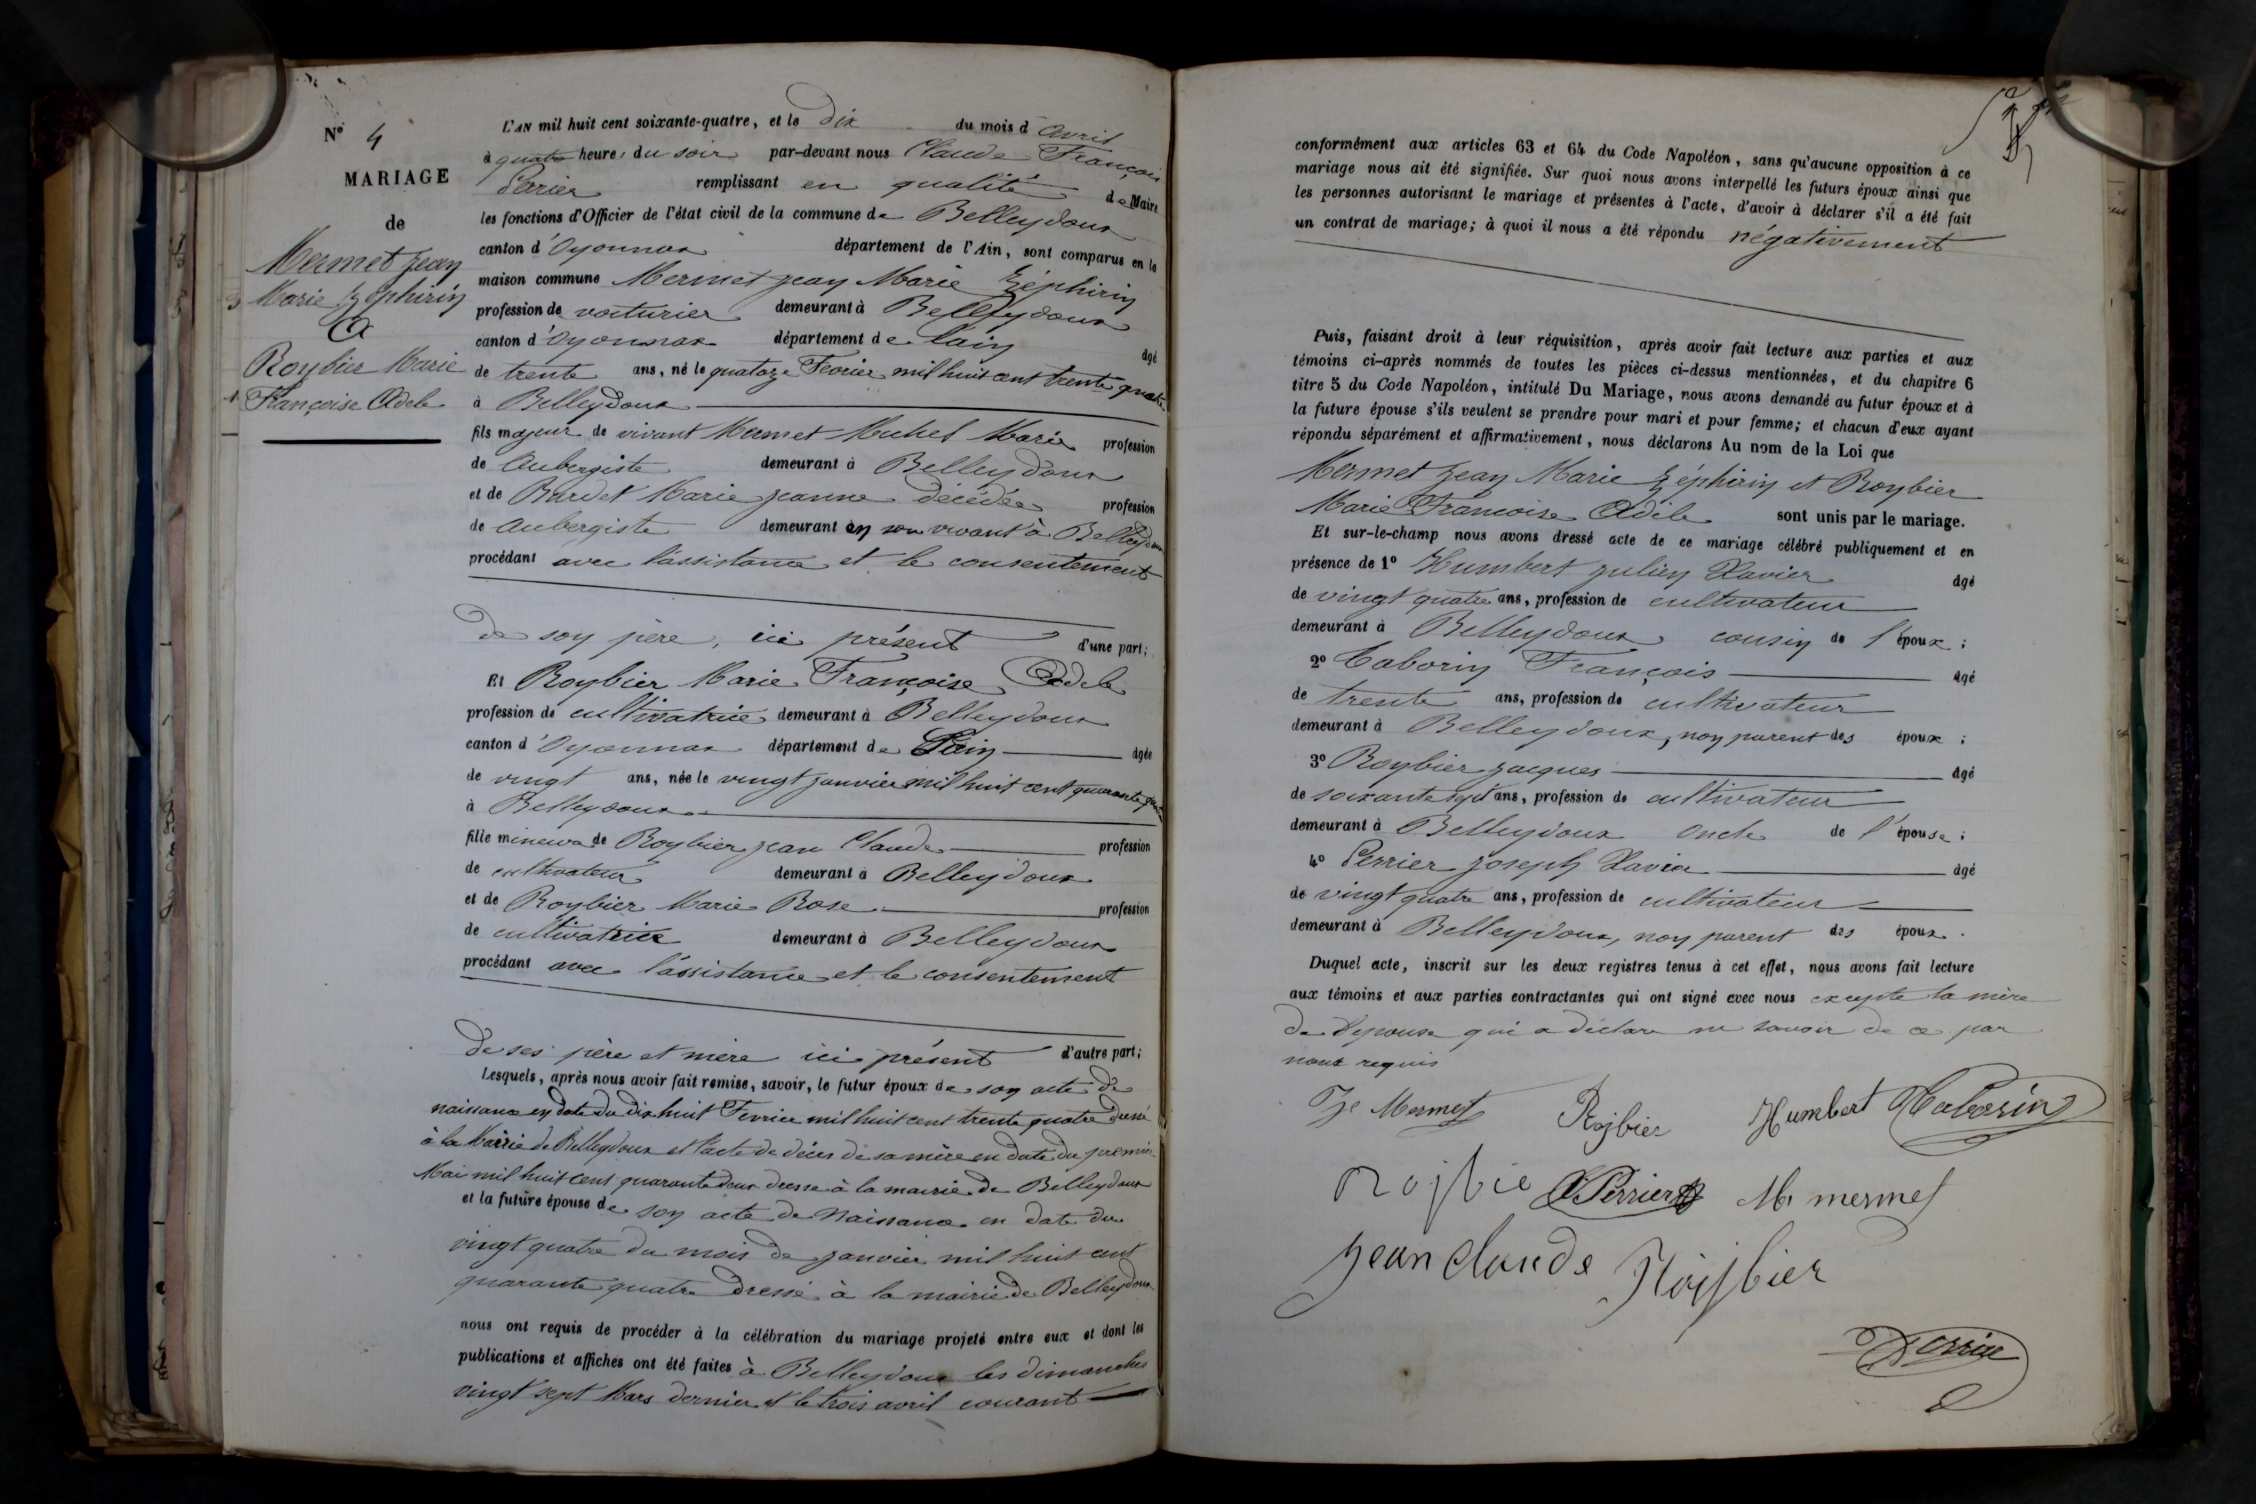 N° 4
MARIAGE
de
Mermet Jean
Marie Zéphirin
&
Roybier Marie
Françoise Adele
L'AN mil huit cent soixante-quatre, et le dix du mois d'avril
à quatre heures du soir par-devant nous Claude François
Perrier remplissant en qualité de Maire
les fonctions d'Officier de l'état civil de la commune de Belleydoux
canton d'Oyonnax département de l'Ain, sont comparus en la
maison commune Mermet Jean Marie Zéphirin
profession de voiturier demeurant à Belleydoux
canton d'Oyonnax département de l'ain âgé
de trente ans, né le quatorze Fevrier mil huit cent trente quatre
à Belleydoux
fils majeur de vivant Mermet Michel Marie profession
de aubergiste demeurant à Belleydoux
et de Burdet Marie Jeanne décédée profession
de aubergiste demeurant en son vivant à Belleydoux
procédant avec l'assistance et le consentement
de son père, ici présent d'une part;
Et Roybier Marie Françoise Adele
profession de cultivatrice demeurant à Belleydoux
canton d'Oyonnax département de l'ain âgée
de vingt ans, née le vingt janvier mil huit cent quarante quatre
à Belleydoux
fille mineure de Roybier jean Claude profession
de cultivateur demeurant à Belleydoux
et de Roybier Marie Rose profession
de cultivatrice demeurant à Belleydoux
procédant avec l'assistance et le consentement
de ses père et mère ici présent d'autre part;
Lesquels, après nous avoir fait remise, savoir, le futur époux de son acte de
naissance en date du dix huit Fevrier mil huit cent trente quatre dressé
à la Mairie de Belleydoux et l'acte de décès de sa mère en date du premier
Mai mil huit cent quarante deux dressé à la mairie de Belleydoux
et la future épouse de son acte de Naissance en date du
vingt quatre du mois de janvier mil huit cent
quarante quatre dressé à la mairie de Belleydoux
nous ont requis de procéder à la célébration du mariage projeté entre eux et dont les
publications et affiches ont été faites à Belleydoux les dimanches
vingt sept Mars dernier et le trois avril courant
conformément aux articles 63 et 64 du Code Napoléon, sans qu'aucune opposition à ce
mariage nous ait été signifiée. Sur quoi nous avons interpellé les futurs époux ainsi que
les personnes autorisant le mariage et présentes à l'acte, d'avoir à déclarer s'il a été fait
un contrat de mariage; à quoi il nous a été répondu négativement
Puis, faisant droit à leur réquisition, après avoir fait lecture aux parties et aux
témoins ci-après nommés de toutes les pièces ci-dessus mentionnées, et du chapitre 6
titre 5 du Code Napoléon, intitulé Du Mariage, nous avons demandé au futur époux et à
la future épouse s'ils veulent se prendre pour mari et pour femme; et chacun d'eux ayant
répondu séparément et affirmativement, nous déclarons Au nom de la Loi que
Mermet Jean Marie Zéphirin et Roybier
Marie Francoise Adèle sont unis par le mariage.
Et sur-le-champ nous avons dressé acte de ce mariage célébré publiquement et en
présence de 1° Humbert Julien Xavier âgé
de vingt quatre ans, profession de cultivateur
demeurant à Belleydoux cousin de l'époux;
2° Taborin François âgé
de trente ans, profession de cultivateur
demeurant à Belleydoux, non parent des époux;
3° Roybier Jacques âgé
de soixante sept ans, profession de cultivateur
demeurant à Belleydoux oncle de l'épouse;
4° Perrier Joseph Xavier âgé
de vingt quatre ans, profession de cultivateur
demeurant à Belleydoux, non parent des époux.
Duquel acte, inscrit sur les deux registres tenus à cet effet, nous avons fait lecture
aux témoins et aux parties contractantes qui ont signé avec nous excepte la mère
de l'epouse qui a déclaré ne savoir de ce par
nous requis
Mermet Roybier Humbert Taborin
Roybier Perrier M. mermet
jean claude Roybier
Perrier